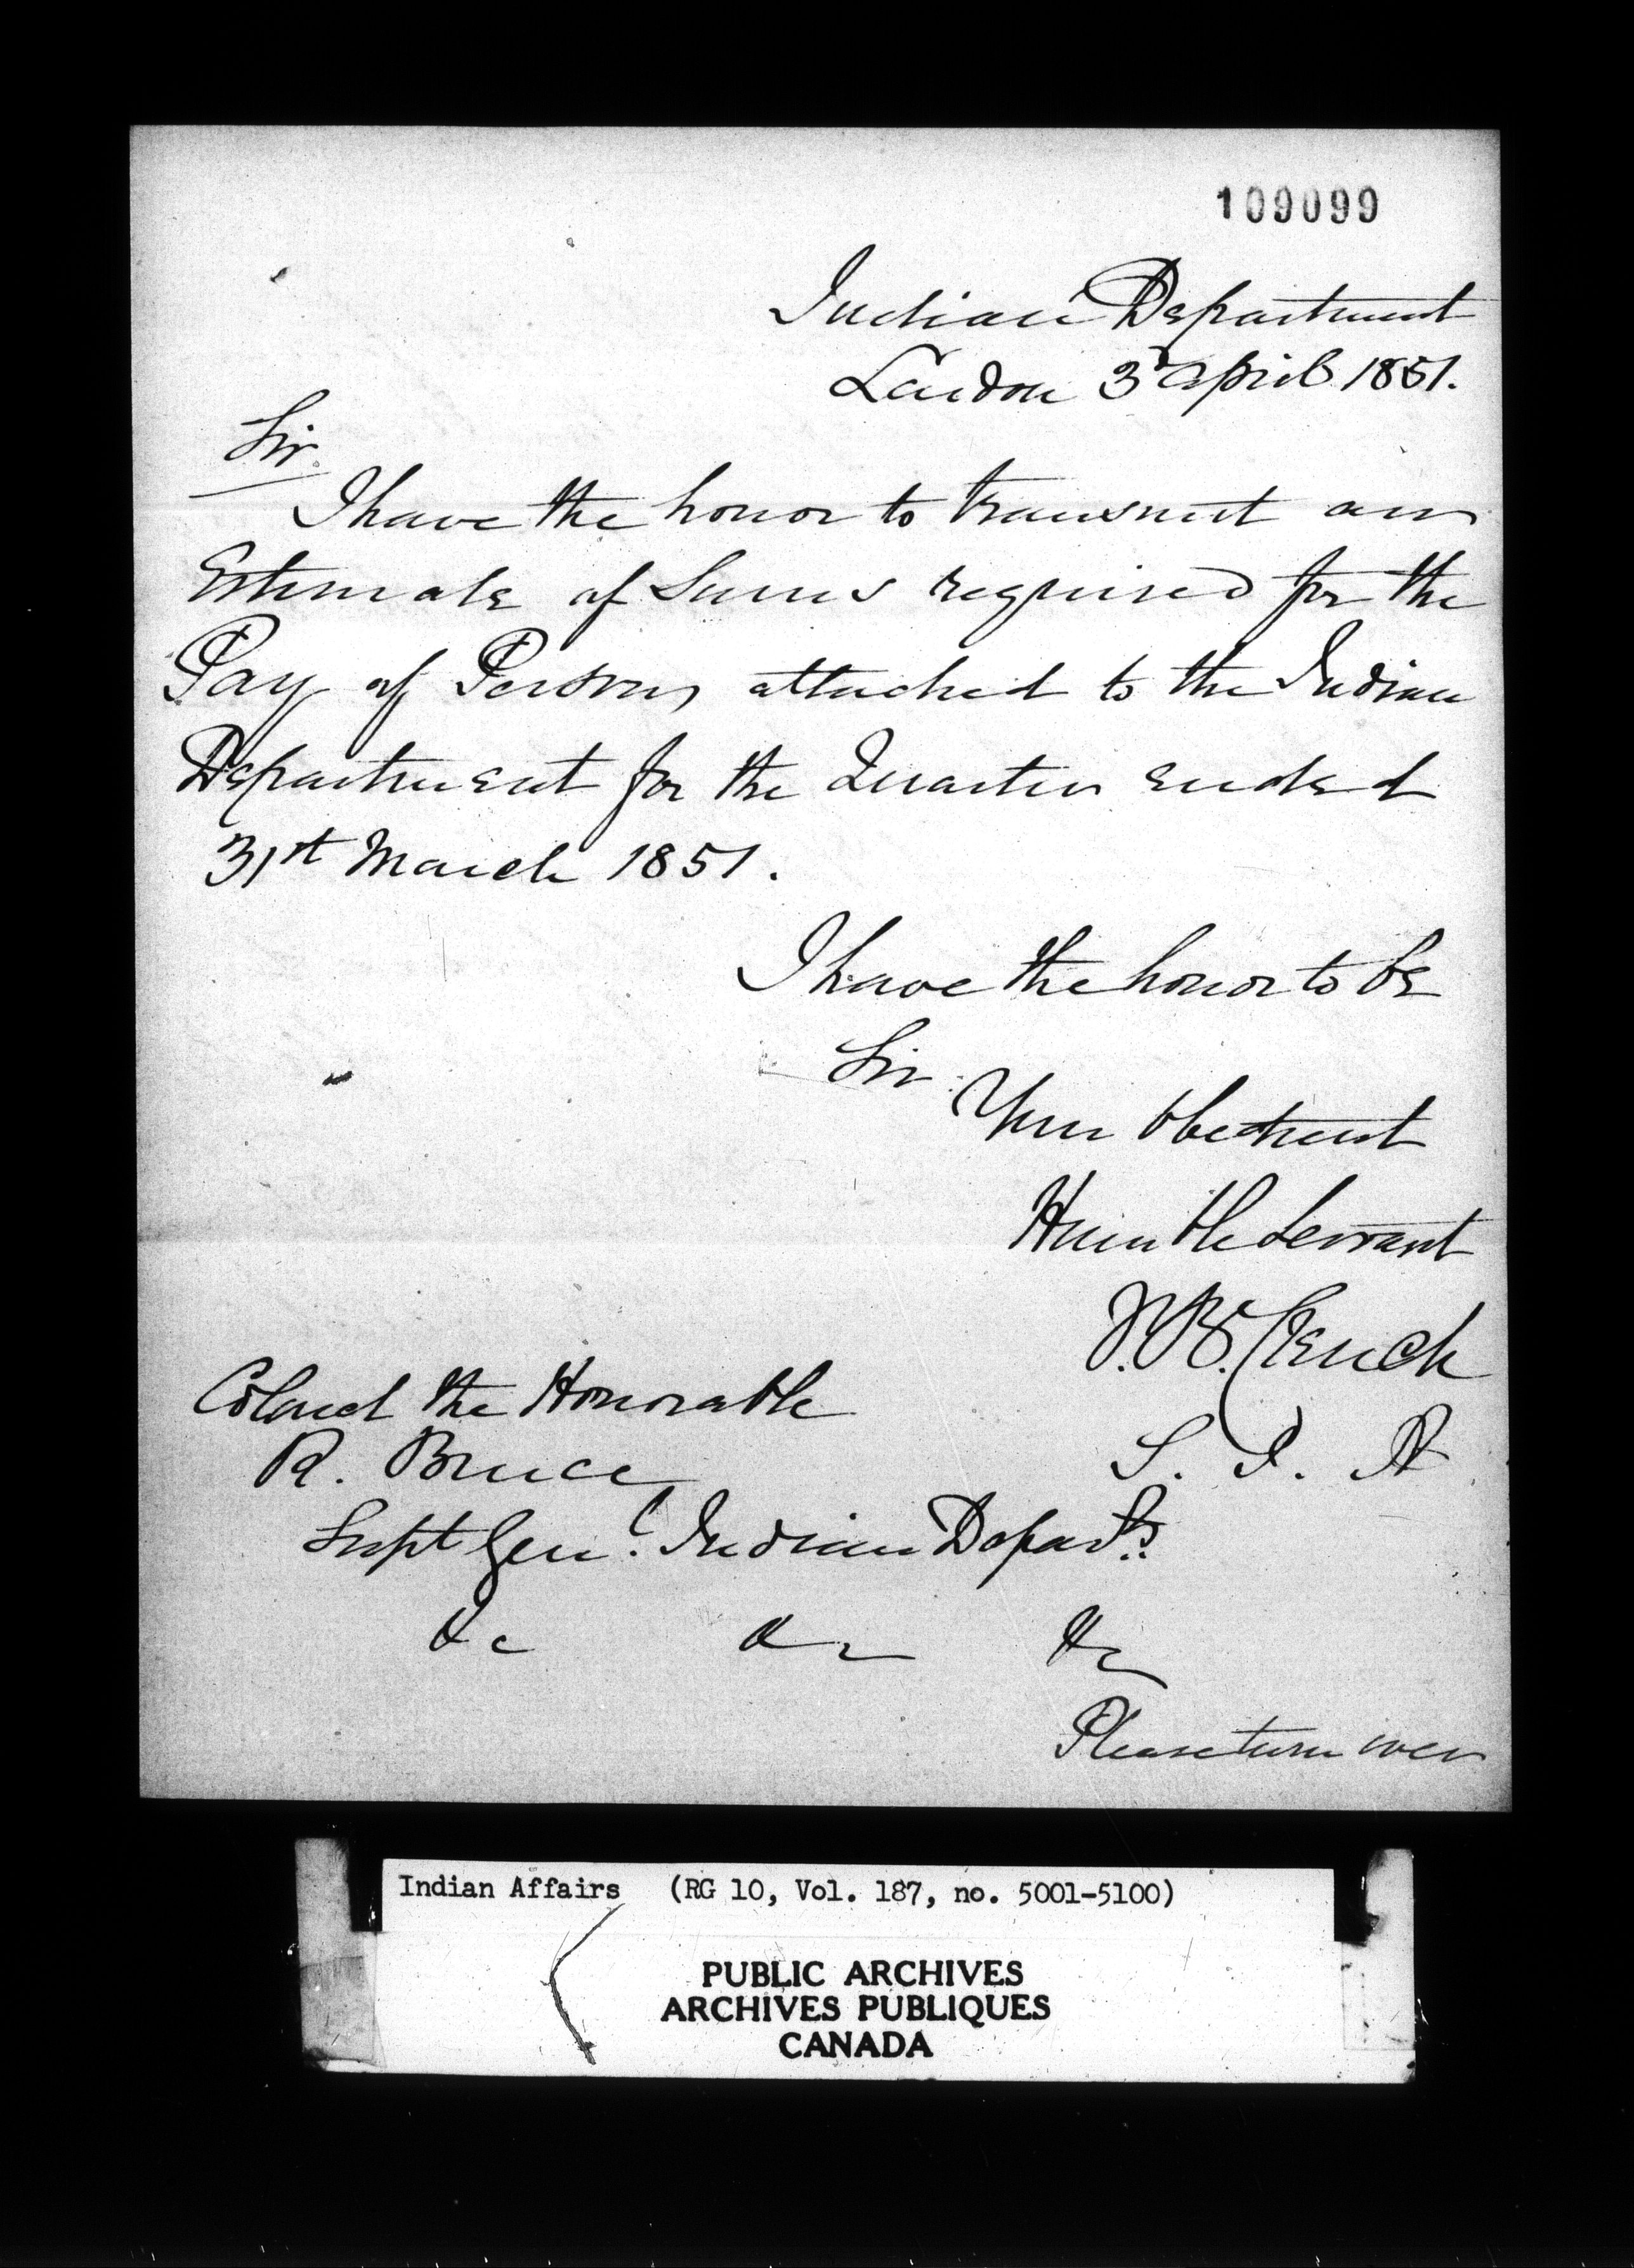 109099
Indian Department
London 3d April 1851.
Sir.
I have the honor to transmit an
Estimate of Sums required for the
Pay of Persons attached to the Indian
Department for the Quarter ended
31st March 1851.
I have the honor to be
Sir
Your Obedient
Humble Servant
J.B. Clench
S. I. A
Colonel the Honorable
R. Bruce
Supt Genl. Indian Depart
&c &c &c
Please turn over
Indian Affairs (RG 10, Vol. 187, no. 5001-5100)
PUBLIC ARCHIVES
ARCHIVES PUBLIQUES
CANADA